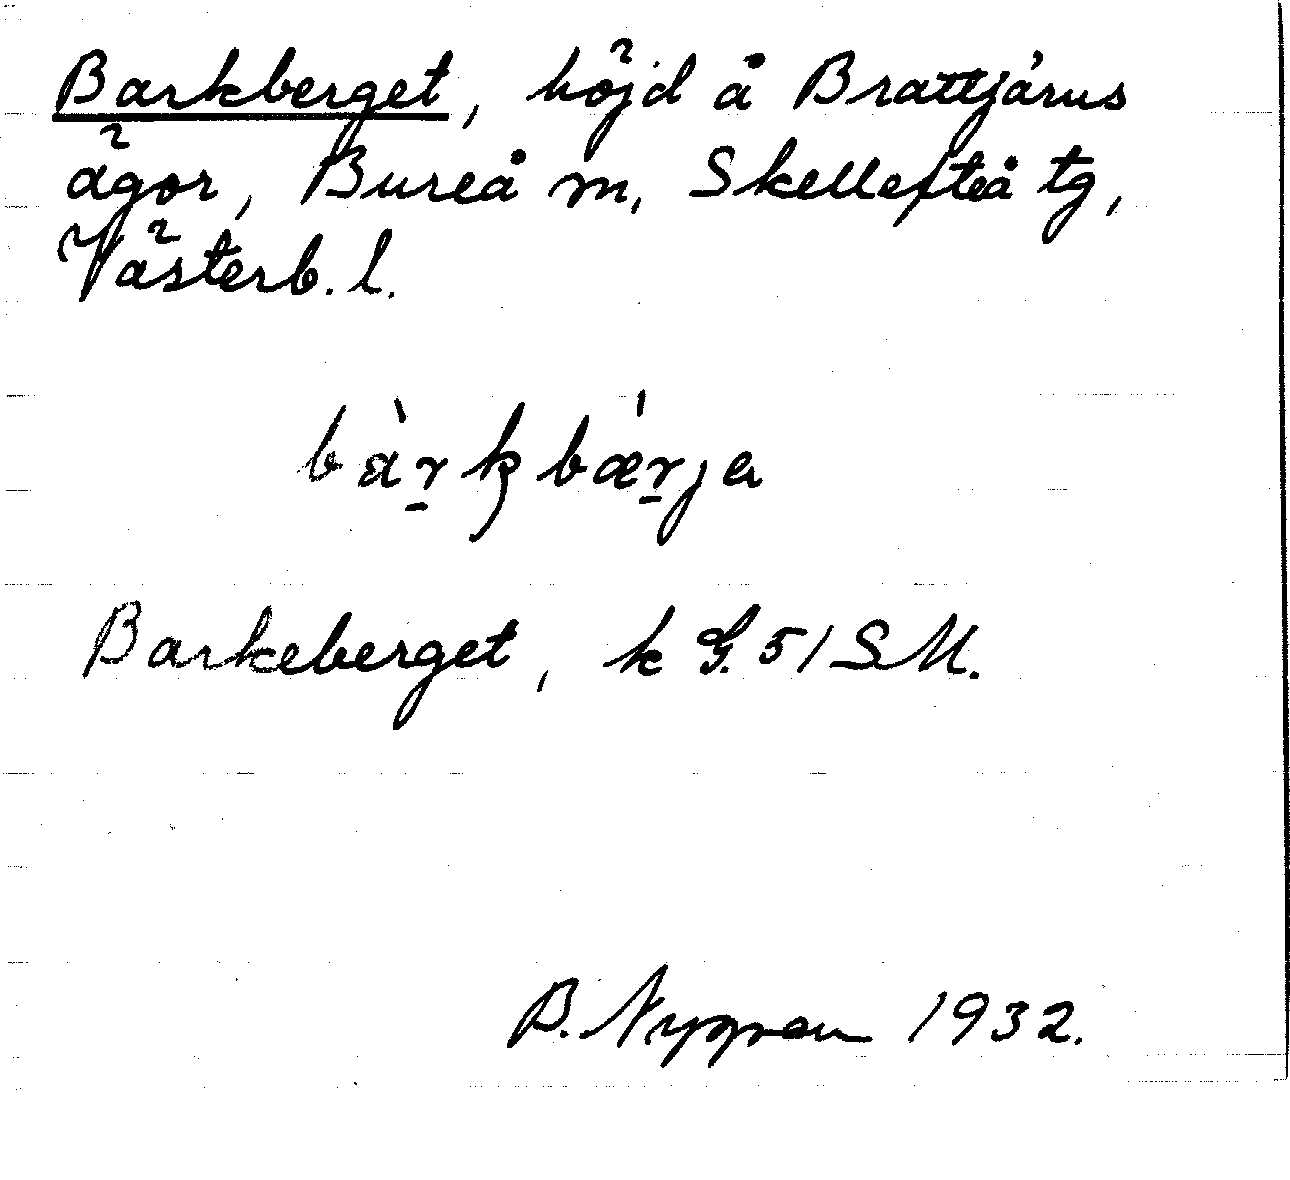 Barkberget, höjd å Brattjärns
ägor, Bureå m, Skellefteå tg,
Västerb. l.
bàr̠kbæ̍r̠ja
Barkeberget, k G. 51 SM.
B. Nygren 1932.